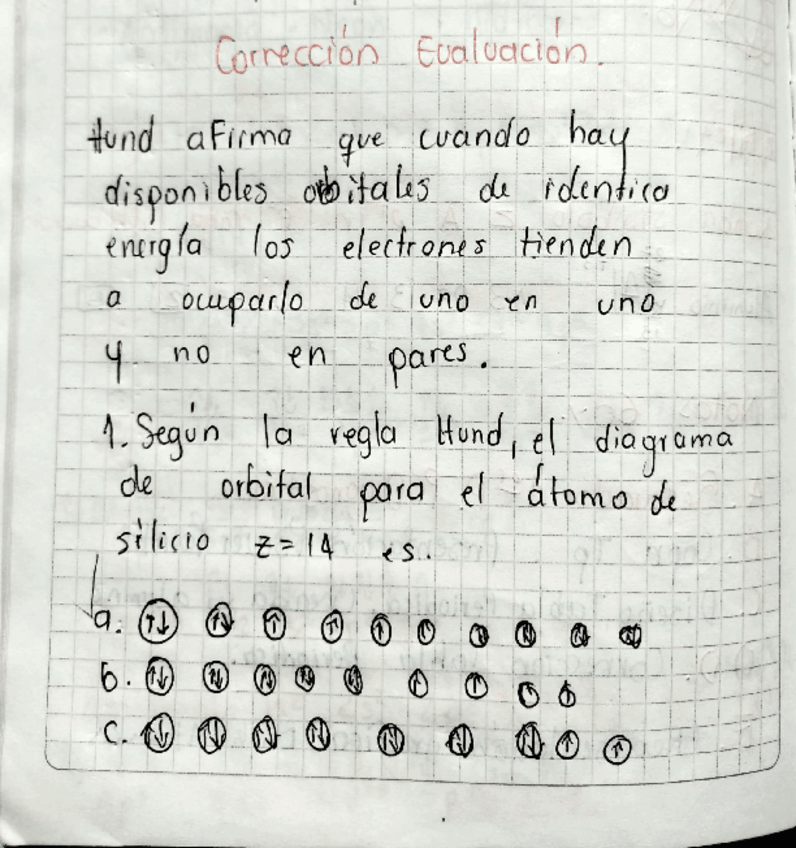 Corrección Evaluación.
Hund afirma que cuando hay
disponibles orbitales de identica
energía los electrones tienden
a ocuparlo de uno en uno
y no en pares.
1. Según la regla Hund, el diagrama
de orbital para el átomo de
silicio z=14 es.
a. ↑↓ ↑↓ ↑ ↑ ↑
b. ↑↓ ↑↓ ↑↓ ↑↓ ↑↓ ↑ ↑
c. ↑↓ ↑↓ ↑↓ ↑↓ ↑↓ ↑↓ ↑↓ ↑ ↑